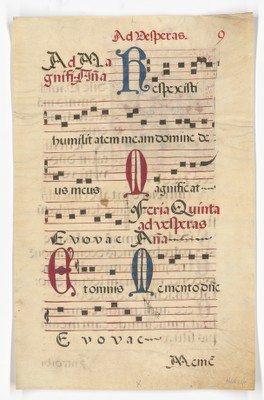 Ad Vesperas. 9
Ad Ma
gnifi. Aña
Respexisti
humilitatem meam domine de
us meus Magnificat
Feria Quinta
ad vesperas
Evovae Aña
Et omnis Memento dñe
Evovae
Memē